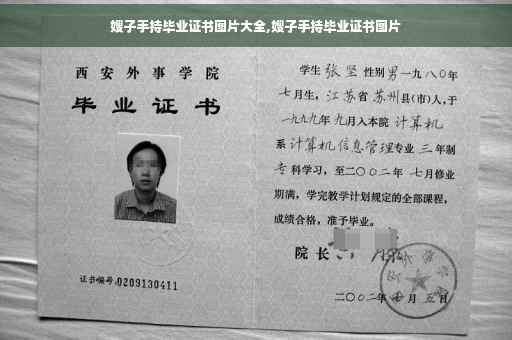 嫂子手持毕业证书图片大全,嫂子手持毕业证书图片
西安外事学院
毕业证书
证书编号:0209130411
学生 张坚 性别男一九八〇年
七月生，江苏省苏州县(市)人,于
一九九九年九月入本院 计算机
系 计算机信息管理专业 三 年制
专科学习，至二〇〇二年 七月修业
期满，学完教学计划规定的全部课程，
成绩合格，准予毕业。
院长
二〇〇二年 月五日